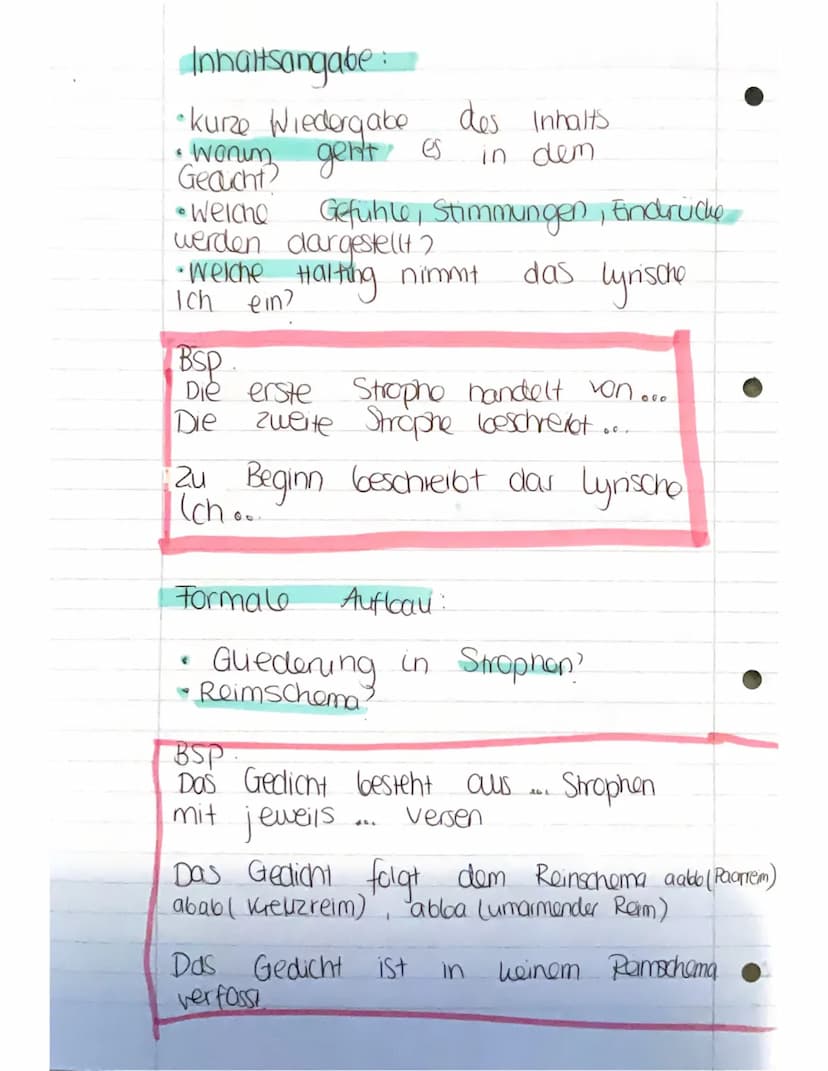 Inhaltsangabe:
• kurze Wiedergabe des Inhalts
• worum geht es in dem
Gedicht?
• welche Gefühle, Stimmungen, Eindrücke
werden dargestellt?
• welche Haltung nimmt das lyrische
Ich ein?
BSP.
Die erste Strophe handelt von...
Die zweite Strophe beschreibt...
Zu Beginn beschreibt das Lyrische
Ich...
Formale Aufbau:
• Gliederung in Strophen?
• Reimschema?
BSP.
Das Gedicht besteht aus ... Strophen
mit jeweils ... versen
Das Gedicht folgt dem Reinschema aabb (Paarreim)
abab (Kreuzreim), abba (umarmender Reim)
Das Gedicht ist in keinem Reimschema
verfasst